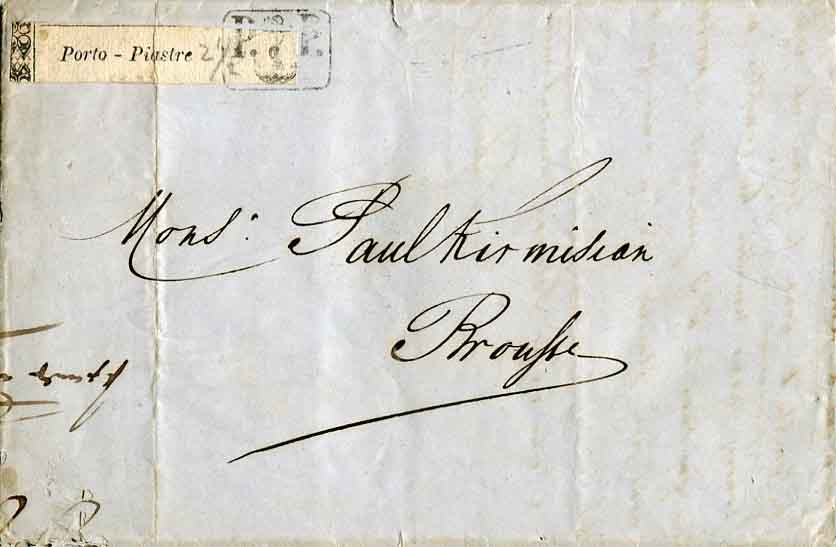 Porto - Piastre 2 1/2
P. P.
Mons: Paul Kirmisian
Brousse